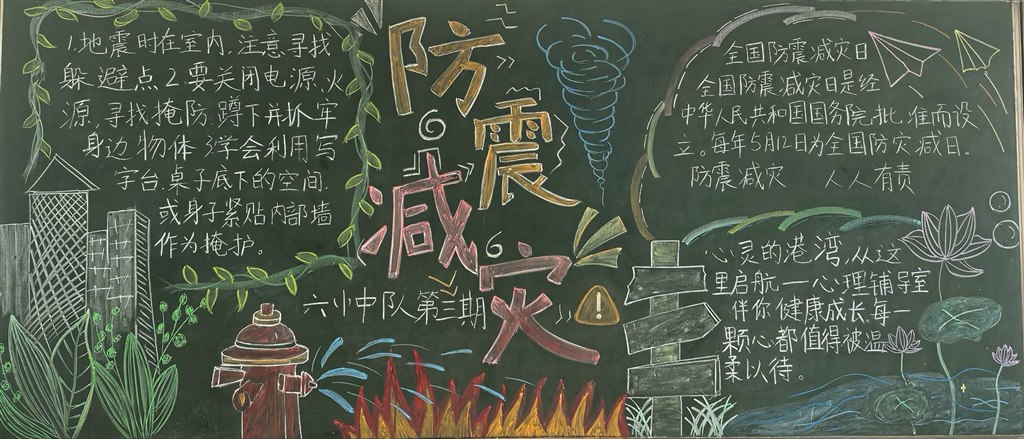 1.地震时在室内,注意寻找
躲避点 2.要关闭电源,火
源,寻找掩防,蹲下并抓牢
身边物体 3.学会利用写
字台,桌子底下的空间,
或身子紧贴内部墙
作为掩护。
防震
减灾
六(1)中队第三期
全国防震减灾日
全国防震减灾日是经
中华人民共和国国务院批准而设
立。每年5月12日为全国防灾减日.
防震减灾 人人有责
心灵的港湾,从这
里启航一心理铺导室
伴你健康成长,每一
颗心都值得被温
柔以待。